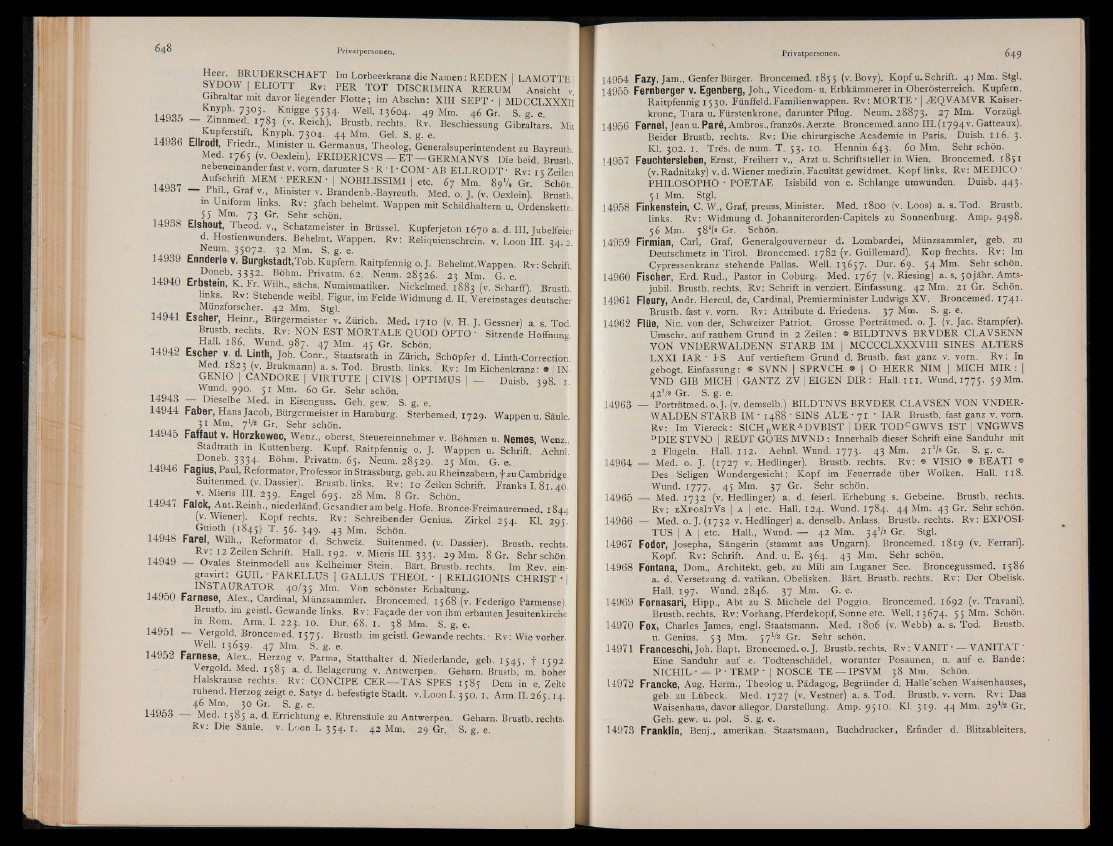 648 Privatpersonen.
Heer. BRUDERSCHAFT Im Lorbeerkranz die Namen: REDEN | LAMOTTE |
SYDOW | ELIOTT Rv: PER TOT DISCRIMINA RERUM Ansicht v.
Gibraltar mit davor liegender Flotte; im Abschn: XIII SEPT · | MDCCLXXXII
Knyph. 7303. Knigge 5534. Well. 13604. 49 Mm. 46 Gr. S. g. e.
14935 — Zinnmed. 1783 (v. Reich). Brustb. rechts. Rv. Beschiessung Gibraltars. Mit
Kupferstift. Knyph. 7304. 44 Mm. Gel. S. g. e.
14936 Ellrodt, Friedr., Minister u. Germanus, Theolog, Generalsuperintendent zu Bayreuth.
Med. 1765 (v. Oexlein). FRIDERICVS — ET — GERMANVS Die beid. Brustb.
nebeneinander fast v. vorn, darunter S · R · I · COM · AB ELLRODT · Rv: 15 Zeilen
Aufschrift MEM · PEREN · | NOBILISSIMI | etc. 67 Mm. 89¼ Gr. Schön.
14937 — Phil., Graf v., Minister v. Brandenb.-Bayreuth. Med. o. J. (v. Oexlein). Brustb.
in Uniform links. Rv: 3fach behelmt. Wappen mit Schildhaltern u. Ordenskette.
55 Mm. 73 Gr. Sehr schön.
14938 Elshout, Theod. v., Schatzmeister in Brüssel. Kupferjeton 1670 a. d. III. Jubelfeier
d. Hostienwunders. Behelmt. Wappen. Rv: Reliquienschrein. v. Loon III. 34. 2.
Neum. 35072. 32 Mm. S. g. e.
14939 Ennderle v. Burgkstadt, Tob. Kupfern. Raitpfennig o. J. Behelmt. Wappen. Rv: Schrift.
Doneb. 3332. Böhm. Privatm. 62. Neum. 28526. 23 Mm. G. e.
14940 Erbstein, K. Fr. Wilh., sächs. Numismatiker. Nickelmed. 1883 (v. Scharff). Brustb.
links. Rv: Stehende weibl. Figur, im Felde Widmung d. II. Vereinstages deutscher
Münzforscher. 42 Mm. Stgl.
14941 Escher, Heinr., Bürgermeister v. Zürich. Med. 1710 (v. H. J. Gessner) a. s. Tod.
Brustb. rechts. Rv: NON EST MORTALE QUOD OPTO · Sitzende Hoffnung.
Hall. 186. Wund. 987. 47 Mm. 45 Gr. Schön.
14942 Escher v. d. Linth, Joh. Conr., Staatsrath in Zürich, Schöpfer d. Linth-Correction.
Med. 1823 (v. Brukmann) a. s. Tod. Brustb. links. Rv: Im Eichenkranz: ❋ | IN-
GENIO | CANDORE | VIRTUTE | CIVIS | OPTIMUS | — Duisb. 398. 1.
Wund. 990. 51 Mm. 60 Gr. Sehr schön.
14943 — Dieselbe Med. in Eisenguss. Geh. gew. S. g. e.
14944 Faber, Hans Jacob, Bürgermeister in Hamburg. Sterbemed. 1729. Wappen u. Säule.
31 Mm. 7½ Gr. Sehr schön.
14945 Faffaut v. Horzkowec, Wenz., oberst. Steuereinnehmer v. Böhmen u. Nemes, Wenz.,
Stadtrath in Kuttenberg. Kupf. Raitpfennig o. J. Wappen u. Schrift. Aehnl.
Doneb. 3334. Böhm. Privatm. 65. Neum. 28529. 25 Mm. G. e.
14946 Fagius, Paul, Reformator, Professor in Strassburg, geb. zu Rheinzabern, † zu Cambridge.
Suitenmed. (v. Dassier). Brustb. links. Rv: 10 Zeilen Schrift. Franks I. 81. 40.
v. Mieris III. 239. Engel 695. 28 Mm. 8 Gr. Schön.
14947 Falck, Ant. Reinh., niederländ. Gesandter am belg. Hofe. Bronce-Freimaurermed. 1844
(v. Wiener). Kopf rechts. Rv: Schreibender Genius. Zirkel 254. Kl. 295.
Guioth (1845) T. 56. 349. 43 Mm. Schön.
14948 Farel, Wilh., Reformator d. Schweiz. Suitenmed. (v. Dassier). Brustb. rechts.
Rv: 12 Zeilen Schrift. Hall. 192. v. Mieris III. 333. 29 Mm. 8 Gr. Sehr schön.
14949 — Ovales Steinmodell aus Kelheimer Stein. Bärt. Brustb. rechts. Im Rev. ein-
gravirt: GUIL · FARELLUS | GALLUS THEOL · | RELIGIONIS CHRIST · |
INSTAURATOR 40/35 Mm. Von schönster Erhaltung.
14950 Farnese, Alex., Cardinal, Münzsammler. Broncemed. 1568 (v. Federigo Parmense).
Brustb. im geistl. Gewande links. Rv: Façade der von ihm erbauten Jesuitenkirche
in Rom. Arm. I. 223. 10. Dur. 68. 1. 38 Mm. S. g. e.
14951 — Vergold. Broncemed. 1575. Brustb. im geistl. Gewande rechts. Rv: Wie vorher.
Well. 13639. 47 Mm. S. g. e.
14952 Farnese, Alex., Herzog v. Parma, Statthalter d. Niederlande, geb. 1545, † 1592.
Vergold. Med. 1585 a. d. Belagerung v. Antwerpen. Geharn. Brustb. m. hoher
Halskrause rechts. Rv: CONCIPE CER—TAS SPES 1585 Dem in e. Zelte
ruhend. Herzog zeigt e. Satyr d. befestigte Stadt. v. Loon I. 350. 1. Arm. II. 265. 14.
46 Mm. 30 Gr. S. g. e.
14953 — Med. 1585 a. d. Errichtung e. Ehrensäule zu Antwerpen. Geharn. Brustb. rechts.
Rv: Die Säule. v. Loon I. 354. 1. 42 Mm. 29 Gr. S. g. e.
Privatpersonen. 649
14954 Fazy, Jam., Genfer Bürger. Broncemed. 1855 (v. Bovy). Kopf u. Schrift. 41 Mm. Stgl.
14955 Fernberger v. Egenberg, Joh., Vicedom- u. Erbkämmerer in Oberösterreich. Kupfern.
Raitpfennig 1530. Fünffeld. Familienwappen. Rv: MORTE · | ÆQVAMVR Kaiser-
krone, Tiara u. Fürstenkrone, darunter Pflug. Neum. 28873. 27 Mm. Vorzügl.
14956 Fernel, Jean u. Paré, Ambros., französ. Aerzte. Broncemed. anno III. (1794 v. Gatteaux).
Beider Brustb. rechts. Rv: Die chirurgische Academie in Paris. Duisb. 116. 3.
Kl. 302. 1. Trés. de num. T. 53. 10. Hennin 643. 60 Mm. Sehr schön.
14957 Feuchtersleben, Ernst, Freiherr v., Arzt u. Schriftsteller in Wien. Broncemed. 1851
(v. Radnitzky) v. d. Wiener medizin. Facultät gewidmet. Kopf links. Rv: MEDICO ·
PHILOSOPHO · POETAE Isisbild von e. Schlange umwunden. Duisb. 443.
51 Mm. Stgl.
14958 Finkenstein, C. W., Graf, preuss. Minister. Med. 1800 (v. Loos) a. s. Tod. Brustb.
links. Rv: Widmung d. Johanniterorden-Capitels zu Sonnenburg. Amp. 9498.
56 Mm. 58½ Gr. Schön.
14959 Firmian, Carl, Graf, Generalgouverneur d. Lombardei, Münzsammler, geb. zu
Deutschmetz in Tirol. Broncemed. 1782 (v. Guillemard). Kop frechts. Rv: Im
Cypressenkranz stehende Pallas. Well. 13657. Dur. 69. 54 Mm. Sehr schön.
14960 Fischer, Erd. Rud., Pastor in Coburg. Med. 1767 (v. Riesing) a. s. 50jähr. Amts-
jubil. Brustb. rechts. Rv: Schrift in verziert. Einfassung. 42 Mm. 21 Gr. Schön.
14961 Fleury, Andr. Hercul. de, Cardinal, Premierminister Ludwigs XV. Broncemed. 1741.
Brustb. fast v. vorn. Rv: Attribute d. Friedens. 37 Mm. S. g. e.
14962 Flüe, Nic. von der, Schweizer Patriot. Grosse Porträtmed. o. J. (v. Jac. Stampfer).
Umschr. auf rauhem Grund in 2 Zeilen: ❋ BILDTNVS BRVDER CLAVSENN
VON VNDERWALDENN STARB IM | MCCCCLXXXVIII SINES ALTERS
LXXI IAR · I·S Auf vertieftem Grund d. Brustb. fast ganz v. vorn. Rv: In
gebogt. Einfassung: ❋ SVNN | SPRVCH ❋ | O HERR NIM | MICH MIR : |
VND GIB MICH | GANTZ ZV | EIGEN DIR : Hall. 111. Wund. 1775. 59 Mm.
42½ Gr. S. g. e.
14963 — Porträtmed. o. J. (v. demselb.) BILDTNVS BRVDER CLAVSEN VON VNDER-
WALDEN STARB IM · 1488 · SINS AL'E · 71 · IAR Brustb. fast ganz v. vorn.
Rv: Im Viereck: SICH BWERADVBIST | DER TODCGWVS IST | VNGWVS
DDIE STVND | REDT GÖES MVND : Innerhalb dieser Schrift eine Sanduhr mit
2 Flügeln. Hall. 112. Aehnl. Wund. 1773. 43 Mm. 21½ Gr. S. g. e.
14964 — Med. o. J. (1727 v. Hedlinger). Brustb. rechts. Rv: ❋ VISIO ❋ BEATI ❋
Des Seligen Wundergesicht: Kopf im Feuerrade über Wolken. Hall. 118.
Wund. 1777. 45 Mm. 37 Gr. Sehr schön.
14965 — Med. 1732 (v. Hedlinger) a. d. feierl. Erhebung s. Gebeine. Brustb. rechts.
Rv: EXPOSITVS | A | etc. Hall. 124. Wund. 1784. 44 Mm. 43 Gr. Sehr schön.
14966 — Med. o. J. (1732 v. Hedlinger) a. denselb. Anlass. Brustb. rechts. Rv: EXPOSI-
TUS | A | etc. Hall., Wund. — 42 Mm. 34½ Gr. Stgl.
14967 Fodor, Josepha, Sängerin (stammt aus Ungarn). Broncemed. 1819 (v. Ferrari).
Kopf. Rv: Schrift. And. u. E. 364. 43 Mm. Sehr schön.
14968 Fontana, Dom., Architekt, geb. zu Mili am Luganer See. Broncegussmed. 1586
a. d. Versetzung d. vatikan. Obelisken. Bärt. Brustb. rechts. Rv: Der Obelisk.
Hall. 197. Wund. 2846. 37 Mm. G. e.
14969 Fornasari, Hipp., Abt zu S. Michele del Poggio. Broncemed. 1692 (v. Travani).
Brustb. rechts. Rv: Vorhang, Pferdekopf, Sonne etc. Well. 13674. 55 Mm. Schön.
14970 Fox, Charles James, engl. Staatsmann. Med. 1806 (v. Webb) a. s. Tod. Brustb.
u. Genius. 53 Mm. 57½ Gr. Sehr schön.
14971 Franceschi, Joh. Bapt. Broncemed. o. J. Brustb. rechts. Rv: VANIT · — VANITAT ·
Eine Sanduhr auf e. Todtenschädel, worunter Posaunen, u. auf e. Bande:
NICHIL · — P · TEMP · | NOSCE TE — IPSVM 38 Mm. Schön.
14972 Francke, Aug. Herm., Theolog u. Pädagog, Begründer d. Halle'schen Waisenhauses,
geb. zu Lübeck. Med. 1727 (v. Vestner) a. s. Tod. Brustb. v. vorn. Rv: Das
Waisenhaus, davor allegor. Darstellung. Amp. 9510. Kl. 319. 44 Mm. 29½ Gr.
Geh. gew. u. pol. S. g. e.
14973 Franklin, Benj., amerikan. Staatsmann, Buchdrucker, Erfinder d. Blitzableiters.